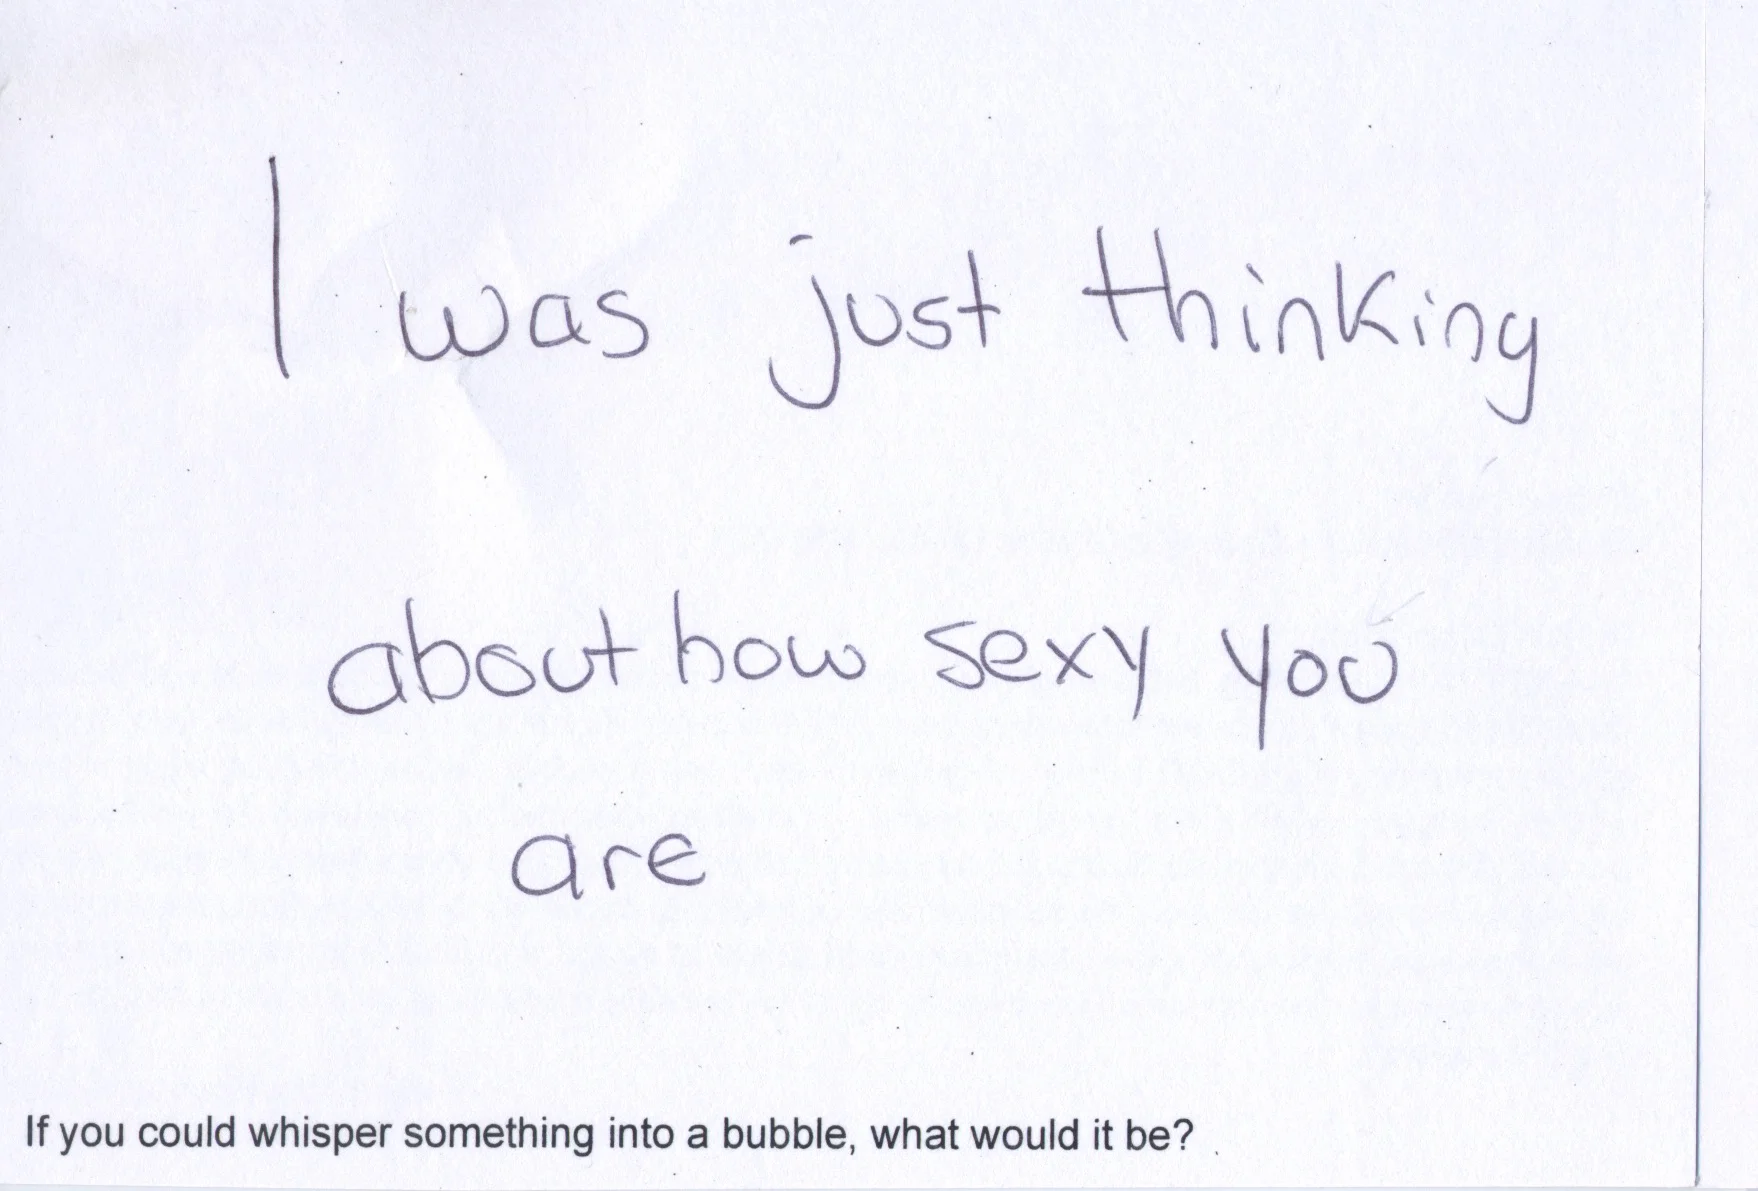 I was just thinking
about how sexy you
are
If you could whisper something into a bubble, what would it be?